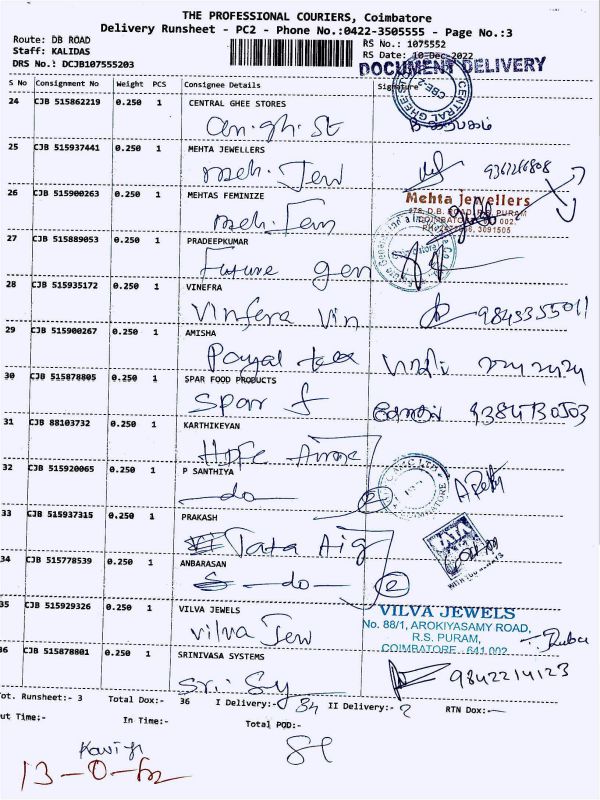 THE PROFESSIONAL COURIERS, Coimbatore
Delivery Runsheet - PC2 - Phone No.:0422-3505555 - Page No.:3
Route: DB ROAD
Staff: KALIDAS
DRS No.: DCJB107555203
RS No.: 1075552
RS Date: 10-Dec-2022
DOCUMENT DELIVERY
S No Consignment No Weight PCS Consignee Details Signature
24 CJB 515862219 0.250 1 CENTRAL GHEE STORES
25 CJB 515937441 0.250 1 MEHTA JEWELLERS
meh. Jew
26 CJB 515900263 0.250 1 MEHTAS FEMINIZE
Mehta Jewellers
meh. Fem
27 CJB 515889053 0.250 1 PRADEEPKUMAR
Future gen
28 CJB 515935172 0.250 1 VINEFRA
Vinfera Vin 9843355011
29 CJB 515900267 0.250 1 AMISHA
Payal
30 CJB 515878805 0.250 1 SPAR FOOD PRODUCTS
Spar f
31 CJB 88103732 0.250 1 KARTHIKEYAN
32 CJB 515920065 0.250 1 P SANTHIYA
-do- 2
33 CJB 515937315 0.250 1 PRAKASH
Tata Aig
34 CJB 515778539 0.250 1 ANBARASAN
-do- 2
35 CJB 515929326 0.250 1 VILVA JEWELS
Vilva Jew
VILVA JEWELS
No. 88/1, AROKIYASAMY ROAD,
R.S. PURAM,
COIMBATORE - 641 002
36 CJB 515878801 0.250 1 SRINIVASA SYSTEMS
Sri Sy 9842214123
Tot. Runsheet:- 3 Total Dox:- 36 I Delivery:- 34 II Delivery:- 2 RTN Dox:-
Out Time:- In Time:- Total POD:-